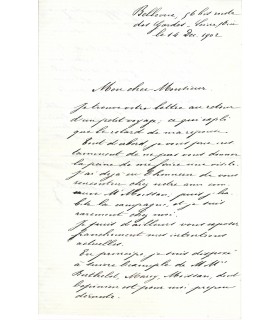 Bellevue, 96 bis route
des Gardes
le 14 Dec. 1902
Mon cher Monsieur
Je trouve votre lettre au retour
d'un petit voyage; ce qui expli
que le retard de ma réponse.
Tout d'abord, je vous prie ins
tamment de ne pas vous donner
la peine de me faire une visite.
J'ai déjà eu l'honneur de vous
rencontrer chez notre ami com
mun Mr puis j'ha
bite la campagne, et je suis
rarement chez moi.
Je puis d'ailleurs vous exposer
franchement mes intentions
actuelles.
En principe je suis disposé
à suivre l'exemple de MM
Berthelot, Marey, Moissan, dont
l'opinion est pour moi prépon
dérante.